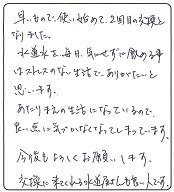 早いもので、使い始めて、2回目の交換と
なりました。
水道水を、毎日、気にせずに飲める事
はストレスのない生活で、ありがたいと
思います。
あたりまえの生活になっているので、
良い点に気づかなくなってしまってます。
今後もよろしくお願いします。
交換に来てくれる水道屋さんも良い人です。